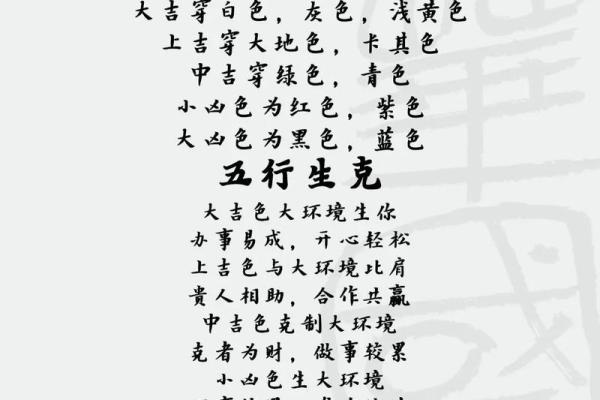 大吉穿白色，灰色，浅黄色
上吉穿大地色，卡其色
中吉穿绿色，青色
小凶色为红色，紫色
大凶色为黑色，蓝色
五行生克
大吉色大环境生你
办事易成，开心轻松
上吉色与大环境比肩
贵人相助，合作共赢
中吉色克制大环境
克者为财，做事较累
小凶色生大环境